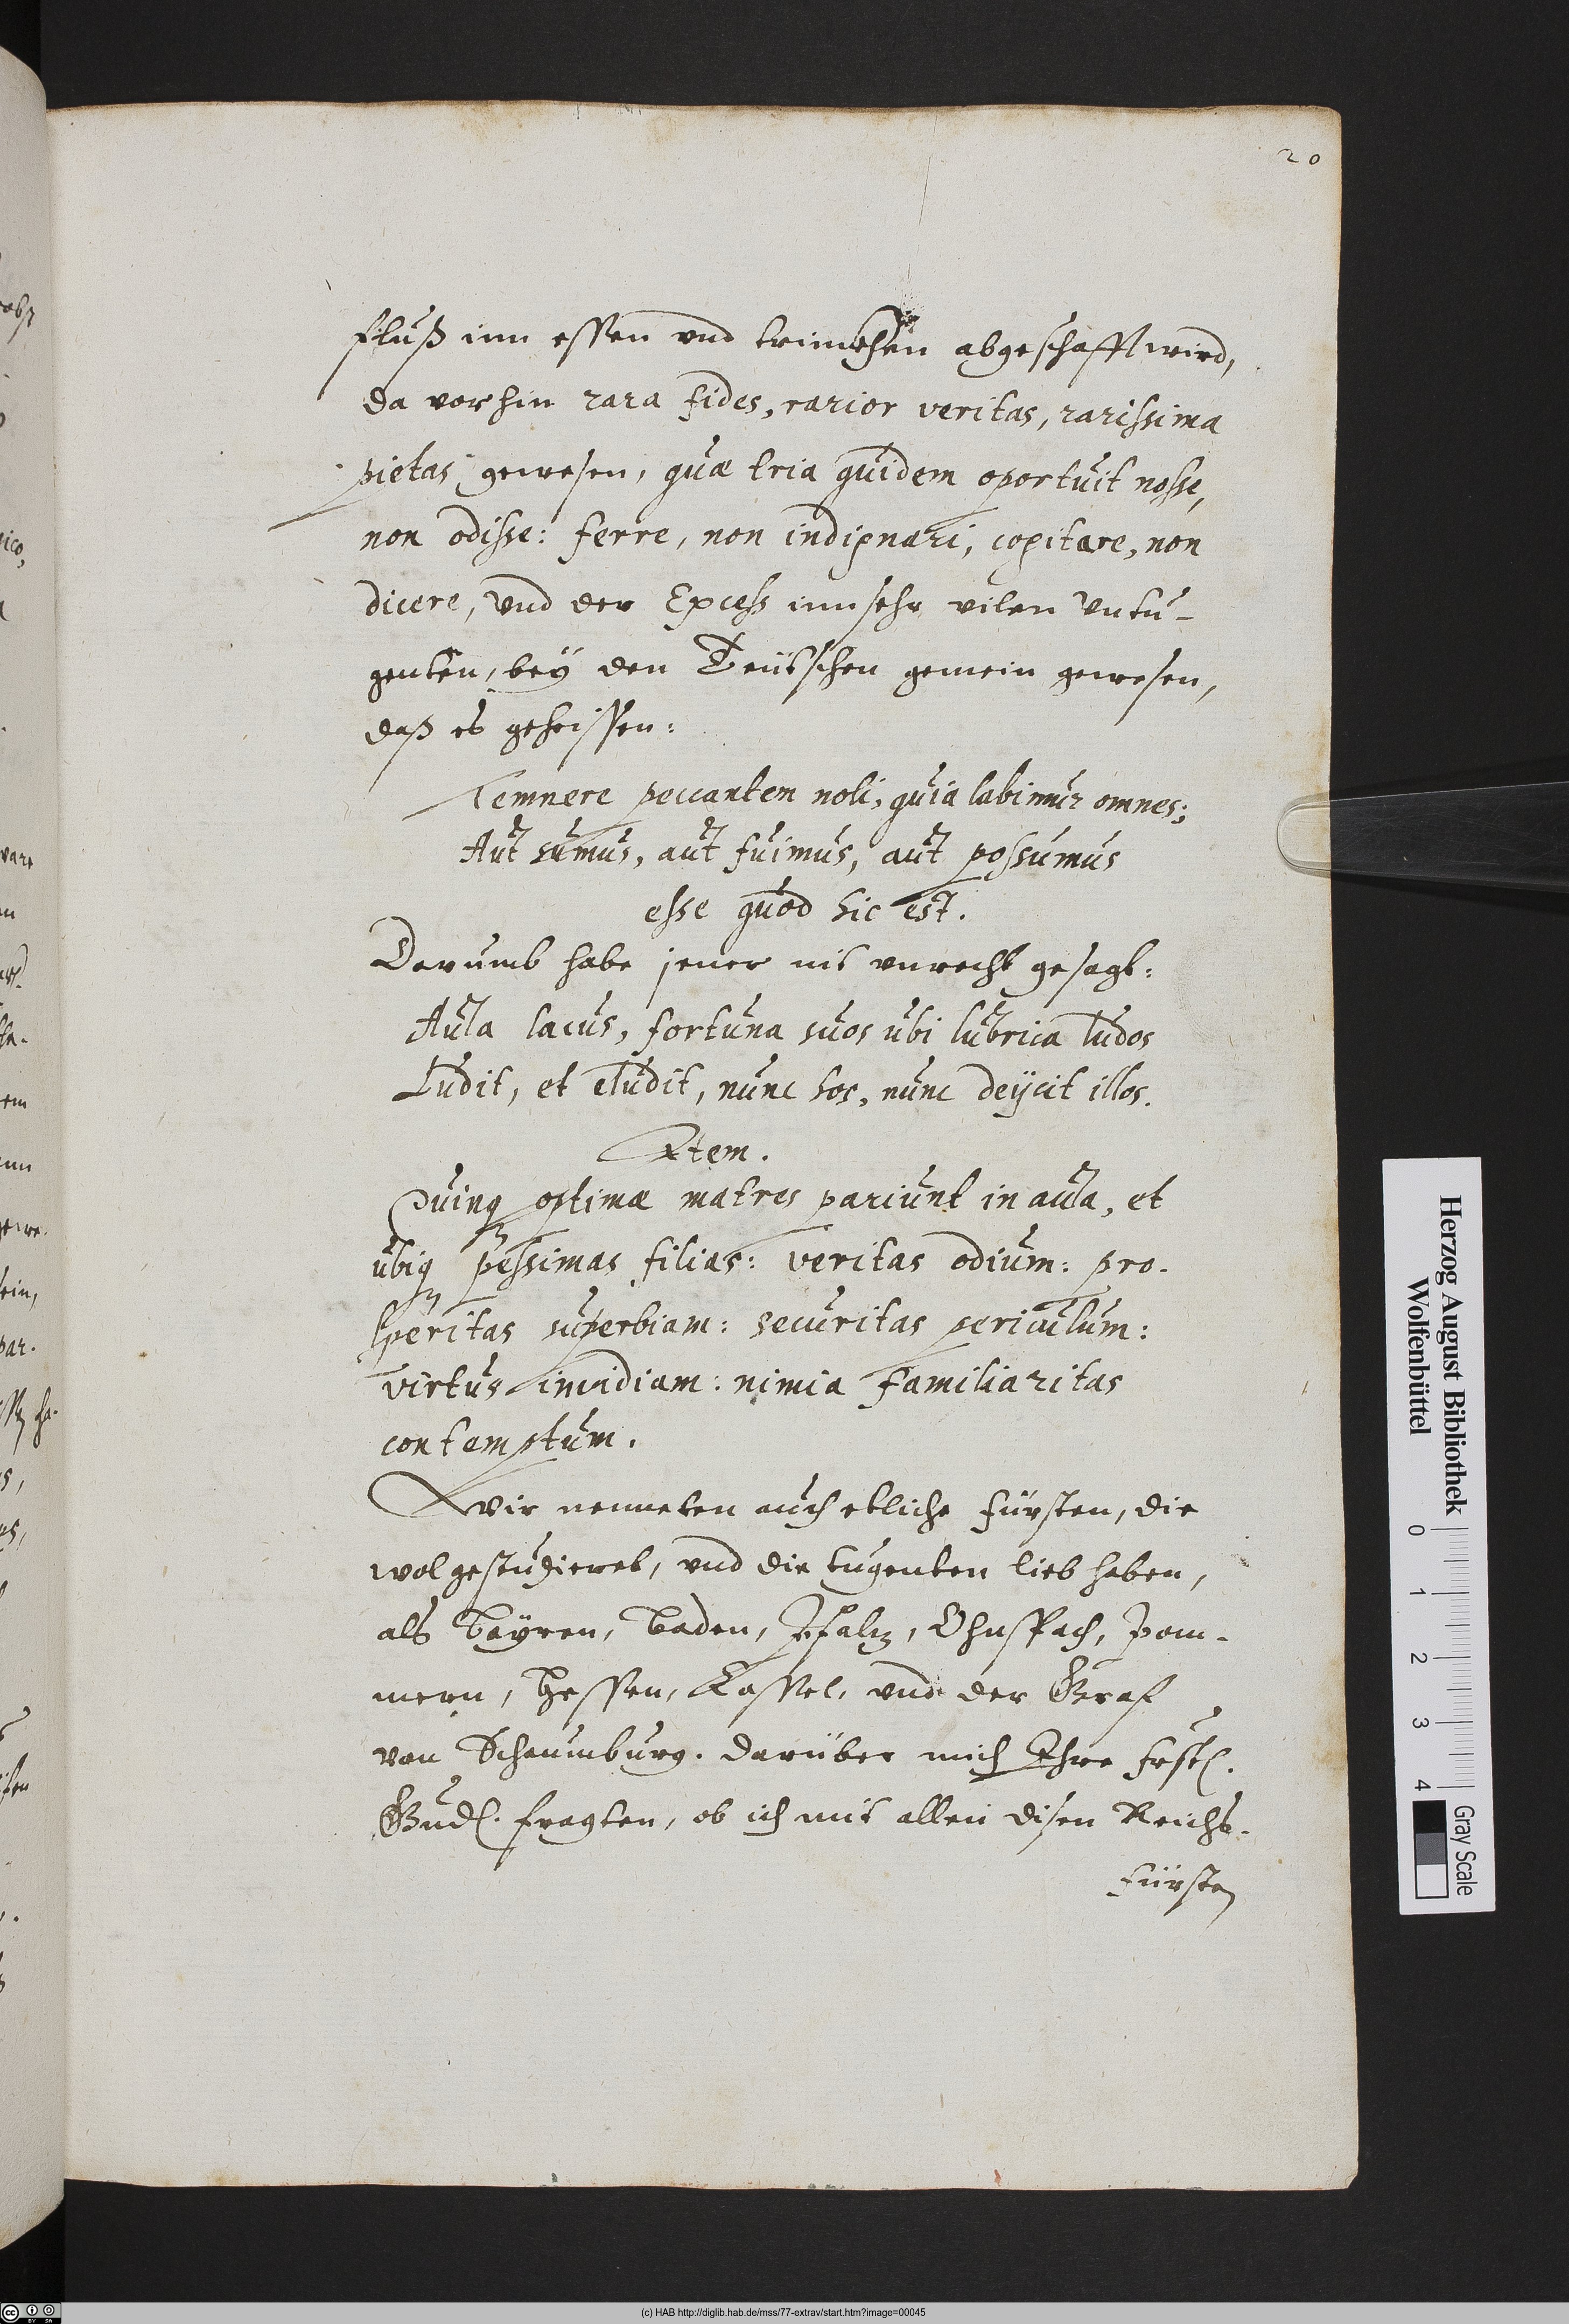 20
fluß inn essen vnd trinckhen abgeschafft wird,
da vorhin rara fides, rarior veritas, rarissima
pietas gewesen, quæ tria quidem oportuit nosse,
non odisse: ferre, non indignari, cogitare, non
dicere, vnd der Excess inn sehr vilen vntu-
genten, bey den Teütschen gemein gewesen,
daß es geheissen:
Temnere peccantem noli, quia labimur omnes;
Aut sumus, aut fuimus, aut possumus
esse quod hic est.
Darumb habe jener nit vnrecht gesagt:
Aula lacus, fortuna suos ubi lubrica ludos
Ludit, et eludit, nunc hos, nunc deijcit illos.
Item.
Quinq optimæ matres pariunt in aula, et
ubiq pessimas filias: veritas odium: pro-
speritas superbiam: securitas periculum:
virtus invidiam: nimia familiaritas
contemptum.
Wir nenneten auch etliche fürsten, die
wol gestudieret, vnd die tugenten lieb haben,
als Bayren, Baden, Pfalz, Ohnspach, Pom-
mern, Hessen, Cassel, vnd der Graf
von Schaumburg. darüber mich Ihre frstl.
Gndl. fragten, ob ich mit allen disen Reichs-
fürsten
Herzog August Bibliothek
Wolfenbüttel
0 1 2 3 4
Gray Scale
(c) HAB http://diglib.hab.de/mss/77-extrav/start.htm?image=00045